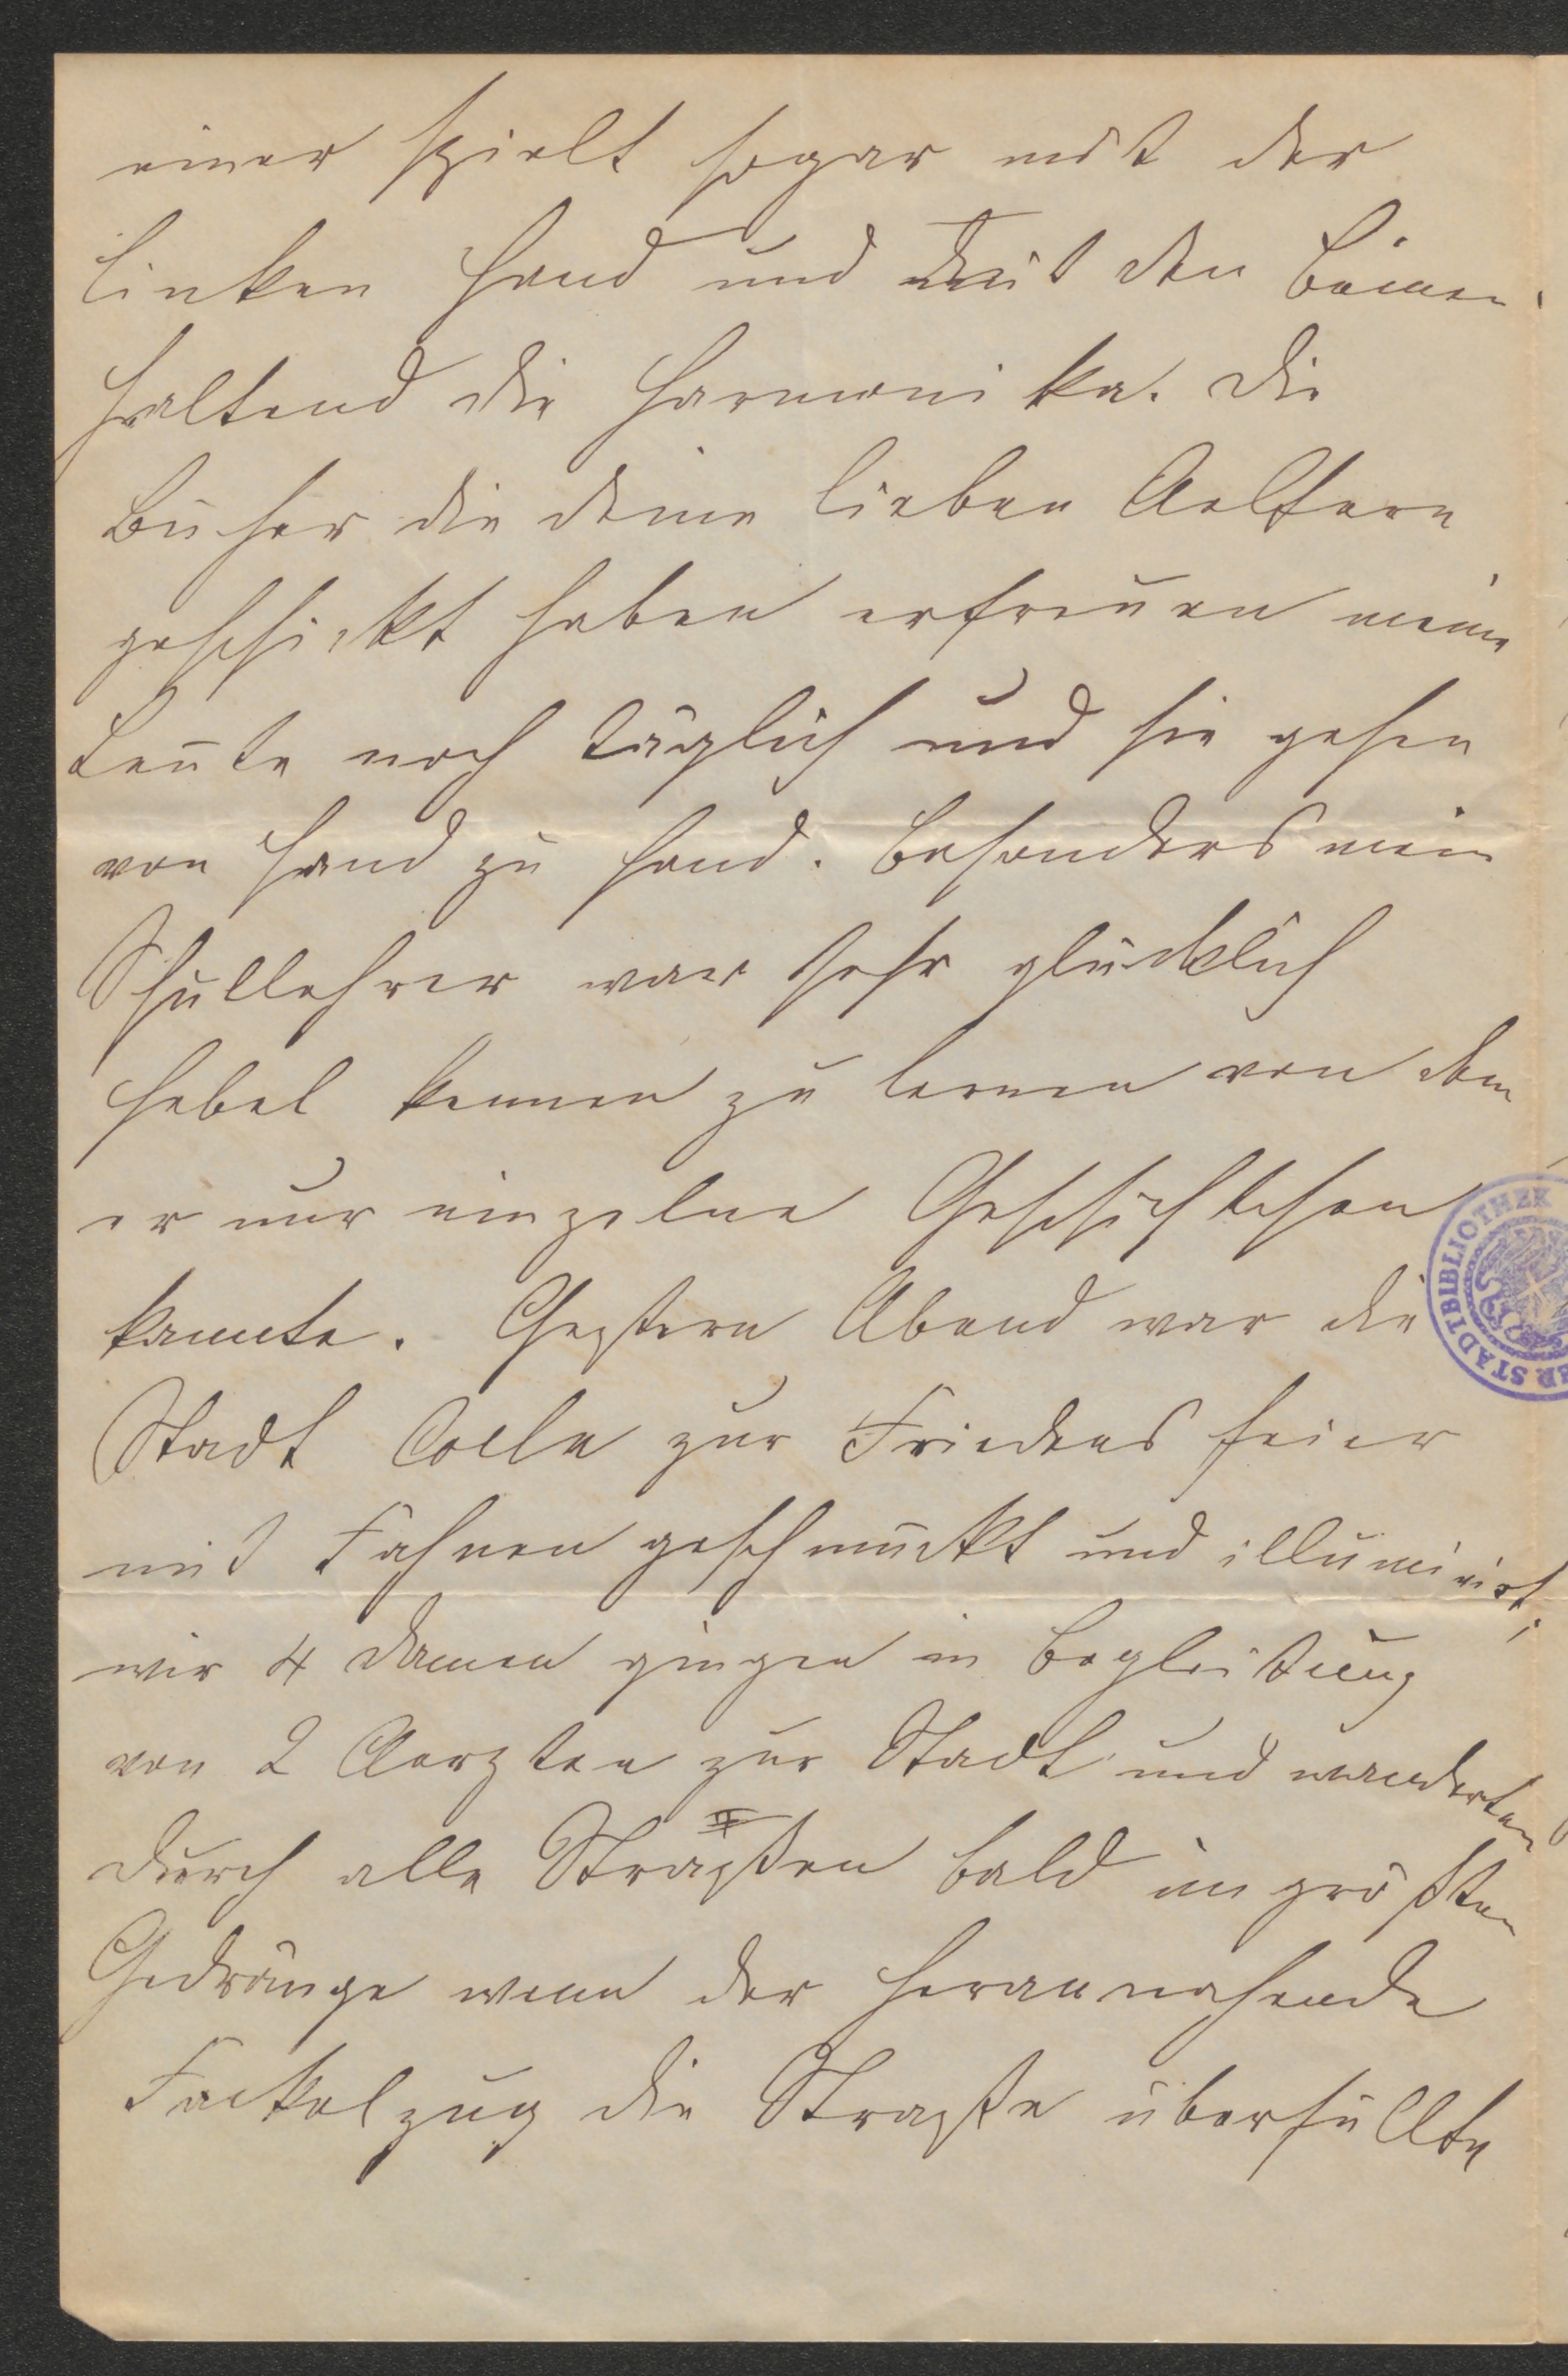 einer spielt sogar mit der
linken Hand und mit den Beinen
haltend die Harmonika. Die
Bücher die deine lieben Aeltern
geschickt haben erfreuen meine
Leute noch täglich und sie gehen
von Hand zu Hand. Besonders mein
Schullehrer war sehr glücklich
Hebel kennen zu lernen von dem
er nur einzelne Geschichtchen
kannte. Gestern Abend war die
Stadt Coeln zur Friedens feier
mit Fahnen geschmückt und illuminirt,
wir 4 Damen gingen in Begleitung
von 2 Aerzten zur Stadt und wanderten
durch alle Straßen bald im größten
Gedränge wenn der herannahende
Fackelzug die Straße überfüllte
STADTBIBLIOTHEK